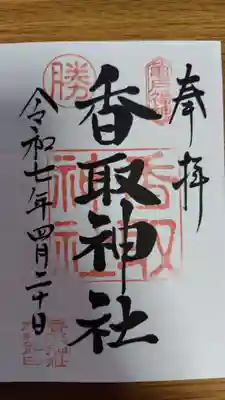 奉拝
香取神社
令和七年四月二十日
勝
香取
神社